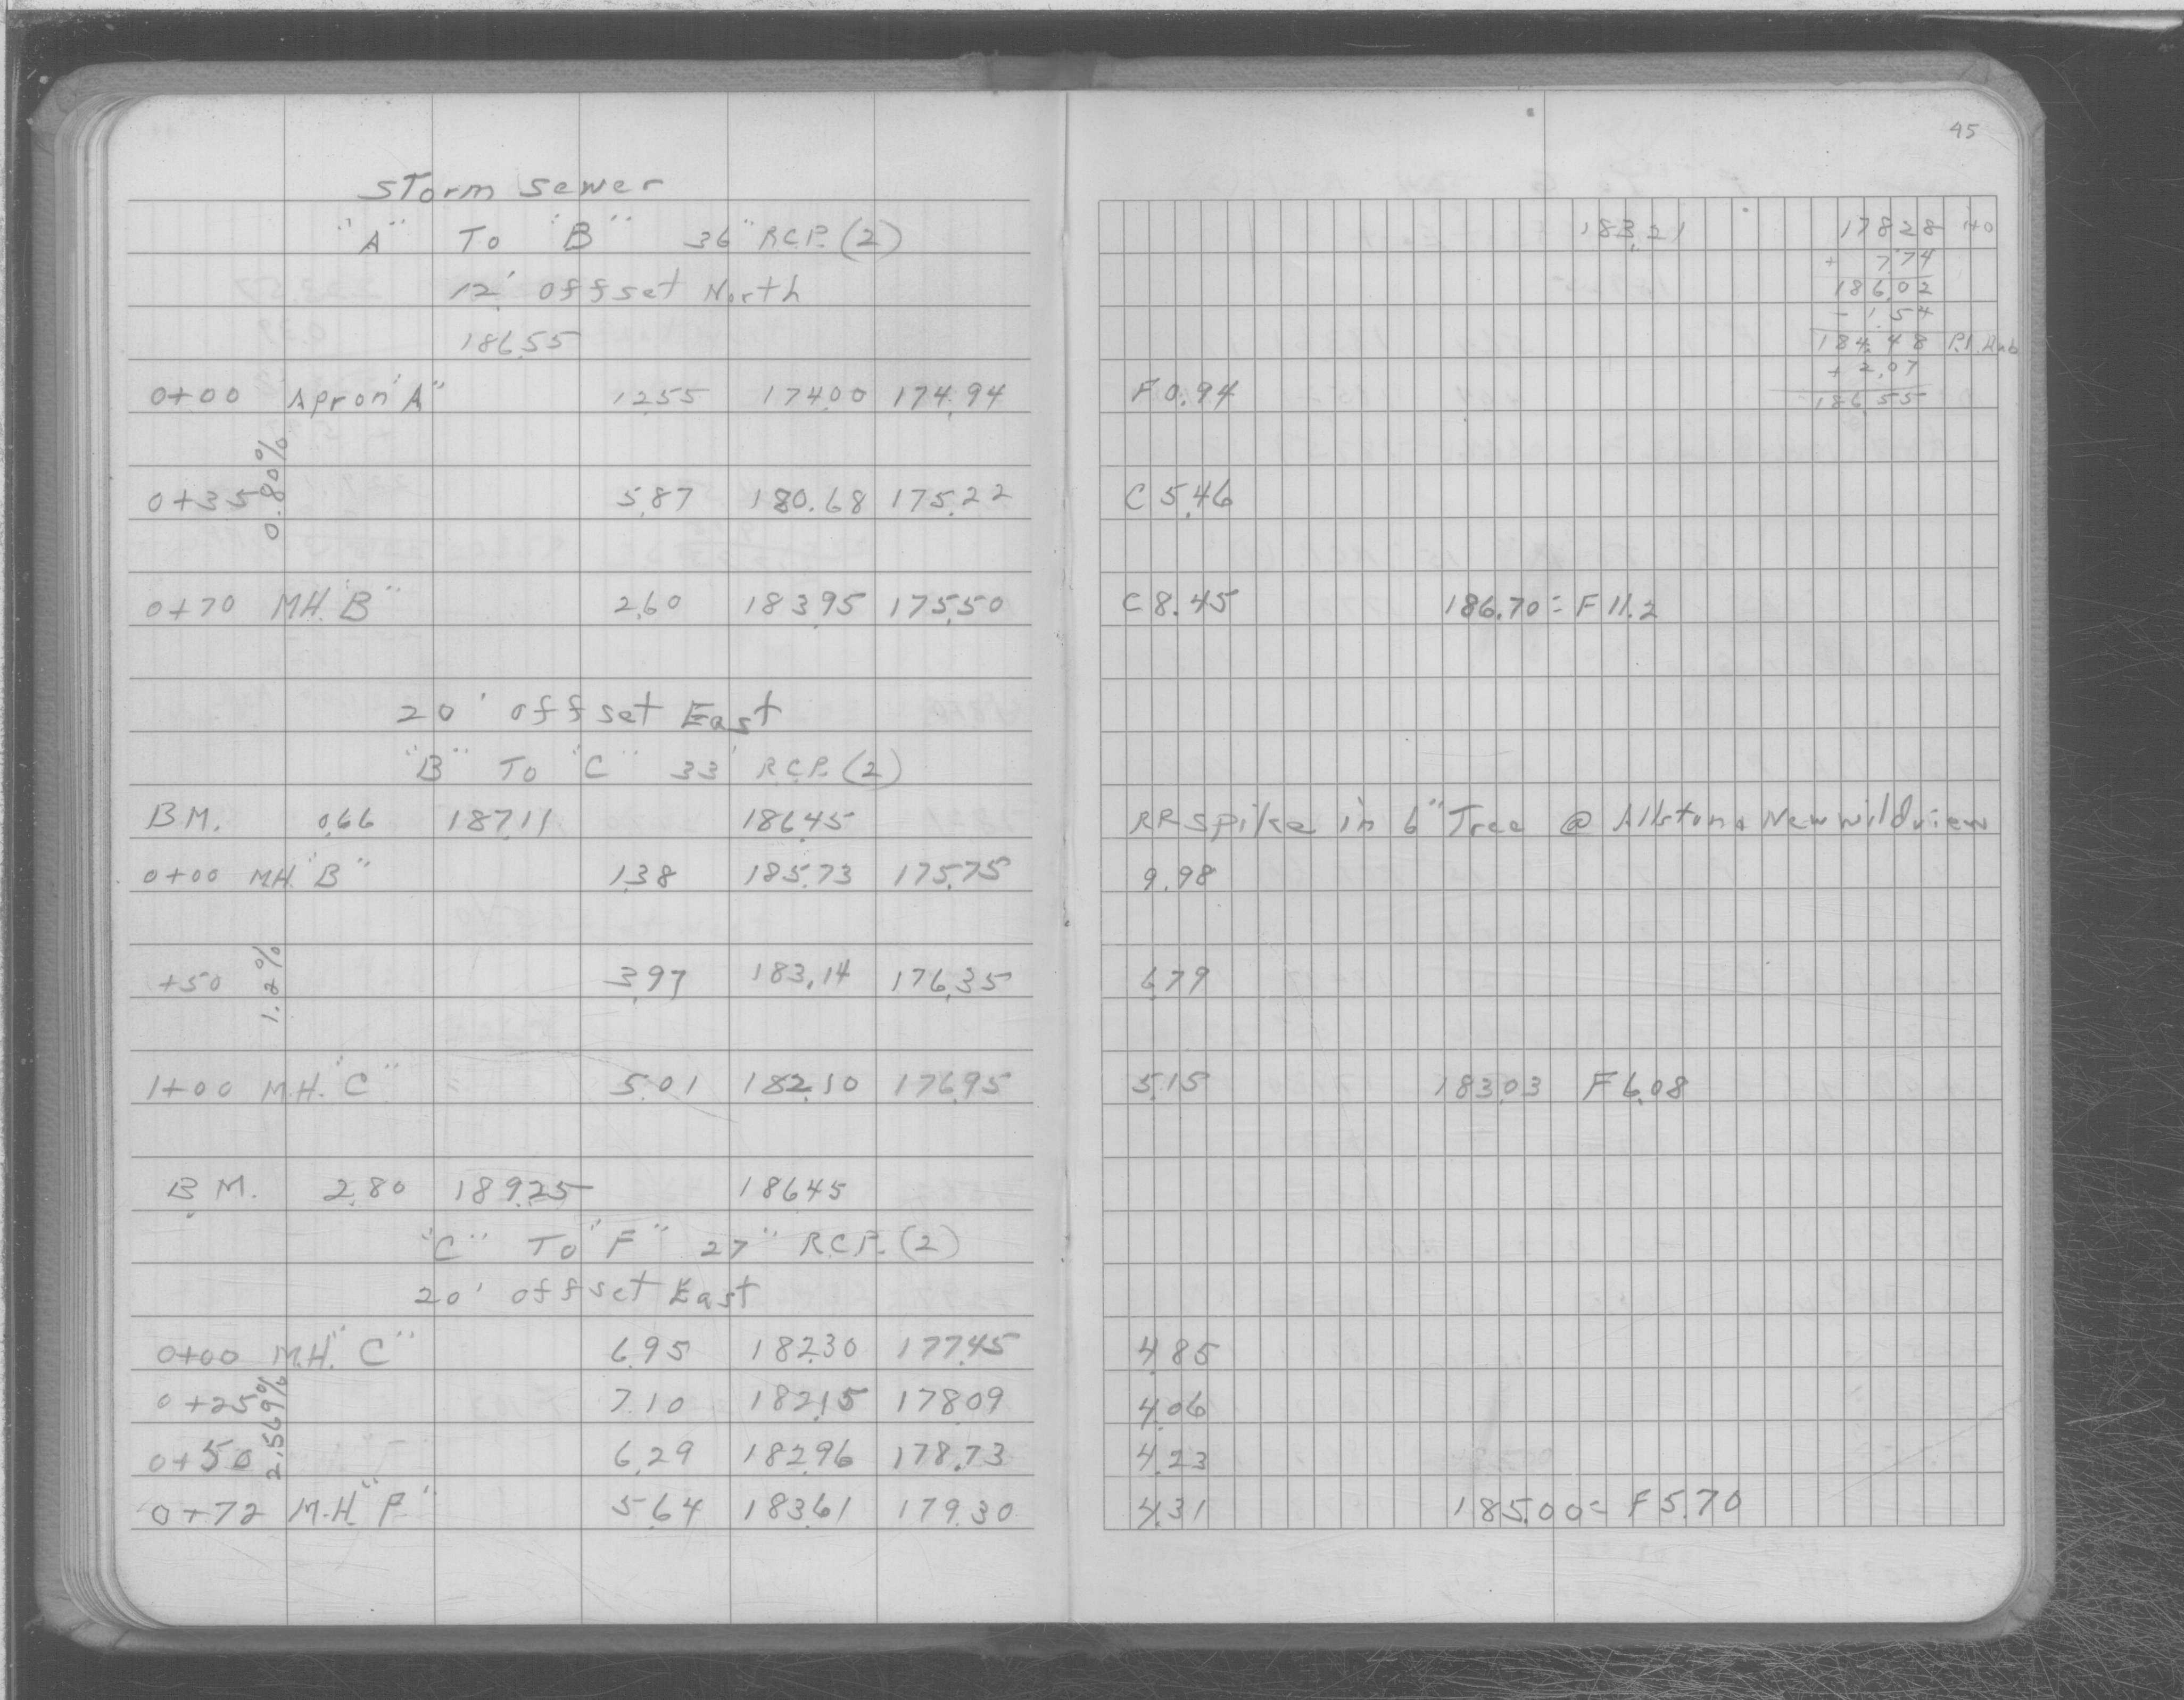 Storm Sewer
"A" To "B" 36" R.C.P. (2)
12' Offset North
186.55
0+00 Apron "A" 12.55 174.00 174.94
0.80%
0+35 5.87 180.68 175.22
0+70 M.H. "B" 2.60 183.95 175.50
20' Offset East
"B" To "C" 33" R.C.P. (2)
B.M. 0.66 187.11 186.45
0+00 M.H. "B" 1.38 185.73 175.75
+50 1.2% 3.97 183.14 176.35
1+00 M.H. "C" 5.01 182.10 176.95
B.M. 2.80 189.25 186.45
"C" To "F" 27" R.C.P. (2)
20' Offset East
0+00 M.H. "C" 6.95 182.30 177.45
0+25 7.10 182.15 178.09
2.569%
0+50 6.29 182.96 178.73
0+72 M.H. "F" 5.64 183.61 179.30
45
183.21 178.28 HO
+ 7.74
186.02
- 1.54
184.48 P.I. Hub
+ 2.07
186.55
F 0.94
C 5.46
C 8.45 186.70 = F 11.2
RR Spike in 6" Tree @ Allston & New Wildview
9.98
6.79
5.15 183.03 F 6.08
4.85
4.06
4.23
4.31 185.00 = F 5.70